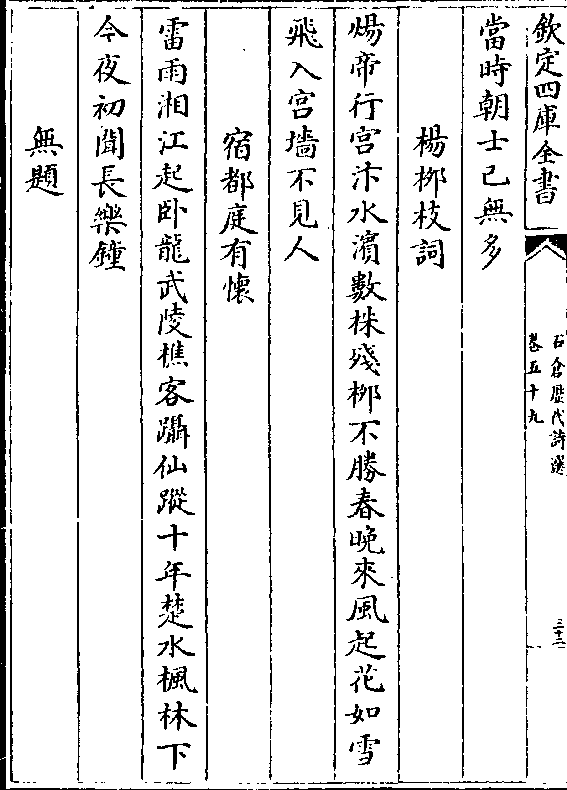 欽定四庫全書
石倉歷代詩選
卷五十九
三十二
當時朝士已無多
楊柳枝詞
煬帝行宫汴水濵數株殘柳不勝春晚來風起花如雪
飛入宫墻不見人
宿都庭有懷
雷雨湘江起卧龍武陵樵客躡仙蹤十年楚水楓林下
今夜初聞長樂鐘
無題